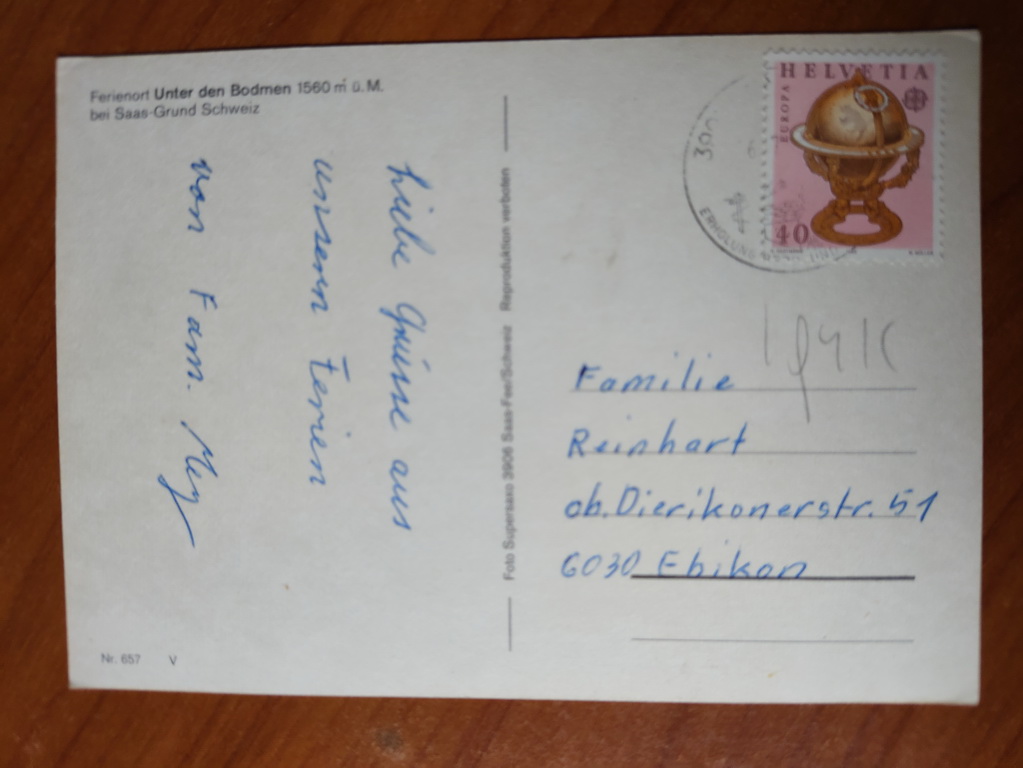 Ferienort Unter den Bodmen 1560 m ü. M.
bei Saas-Grund Schweiz
Liebe Grüsse aus
unseren Ferien
von Fam.
Nr. 657 V
Foto Supersaxo 3906 Saas-Fee/Schweiz Reproduktion verboten
HELVETIA
EUROPA
40
Familie
Reinhart
ob. Dierikonerstr. 51
6030 Ebikon